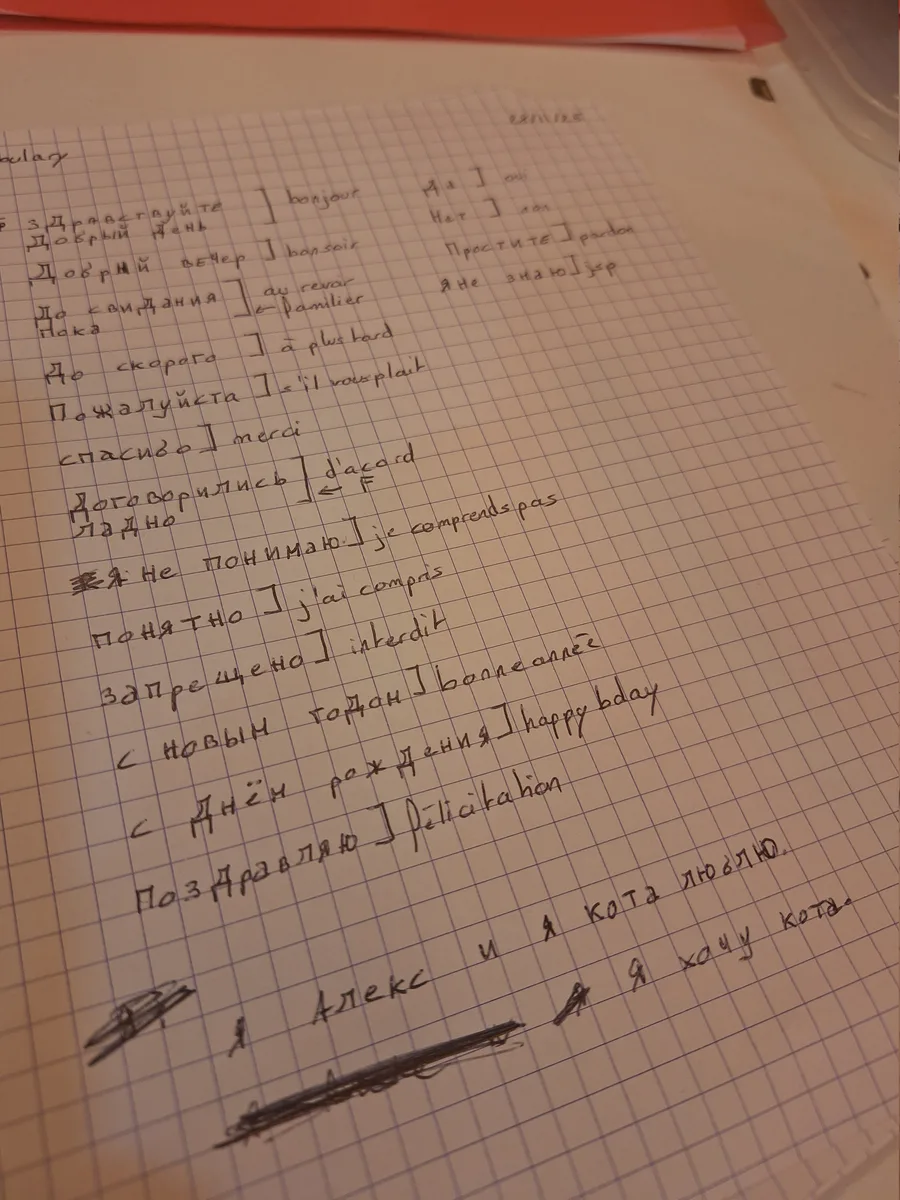 bulary
здравствуйте ] bonjour
Добрый день
Добрый вечер ] bonsoir
До свидания ] au revoir
Пока ← familier
До скорого ] à plus tard
Пожалуйста ] s'il vous plait
спасиво ] merci
Договорились ] d'acord
ладно ← F
я не понимаю ] je comprends pas
понятно ] j'ai compris
запрещено ] interdit
с новым годон ] bonne année
с Днён рождения ] happy bday
Поздравляю ] félicitation
Да ] oui
Нет ] non
Простите ] pardon
я не знаю ] jsp
я Алекс и я кота люблю.
я хочу кота.